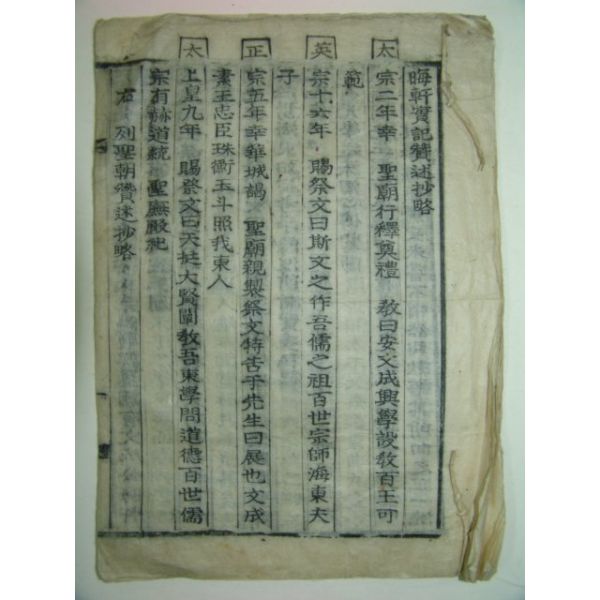 晦軒實記贊述抄略
太宗二年幸 聖廟行釋奠禮 敎曰安文成興學設敎百王可
範
英宗十六年 賜祭文曰斯文之作吾儒之祖百世宗師海東夫
子
正宗五年幸華城謁 聖廟親製祭文特告于先生曰展也文成
素王志臣珠衡玉斗照我東人
太上皇九年 賜祭文曰天挺大賢闡敎吾東學問道德百世儒
宗有赫道統 聖廡殿祀
右 列聖朝贊述抄略